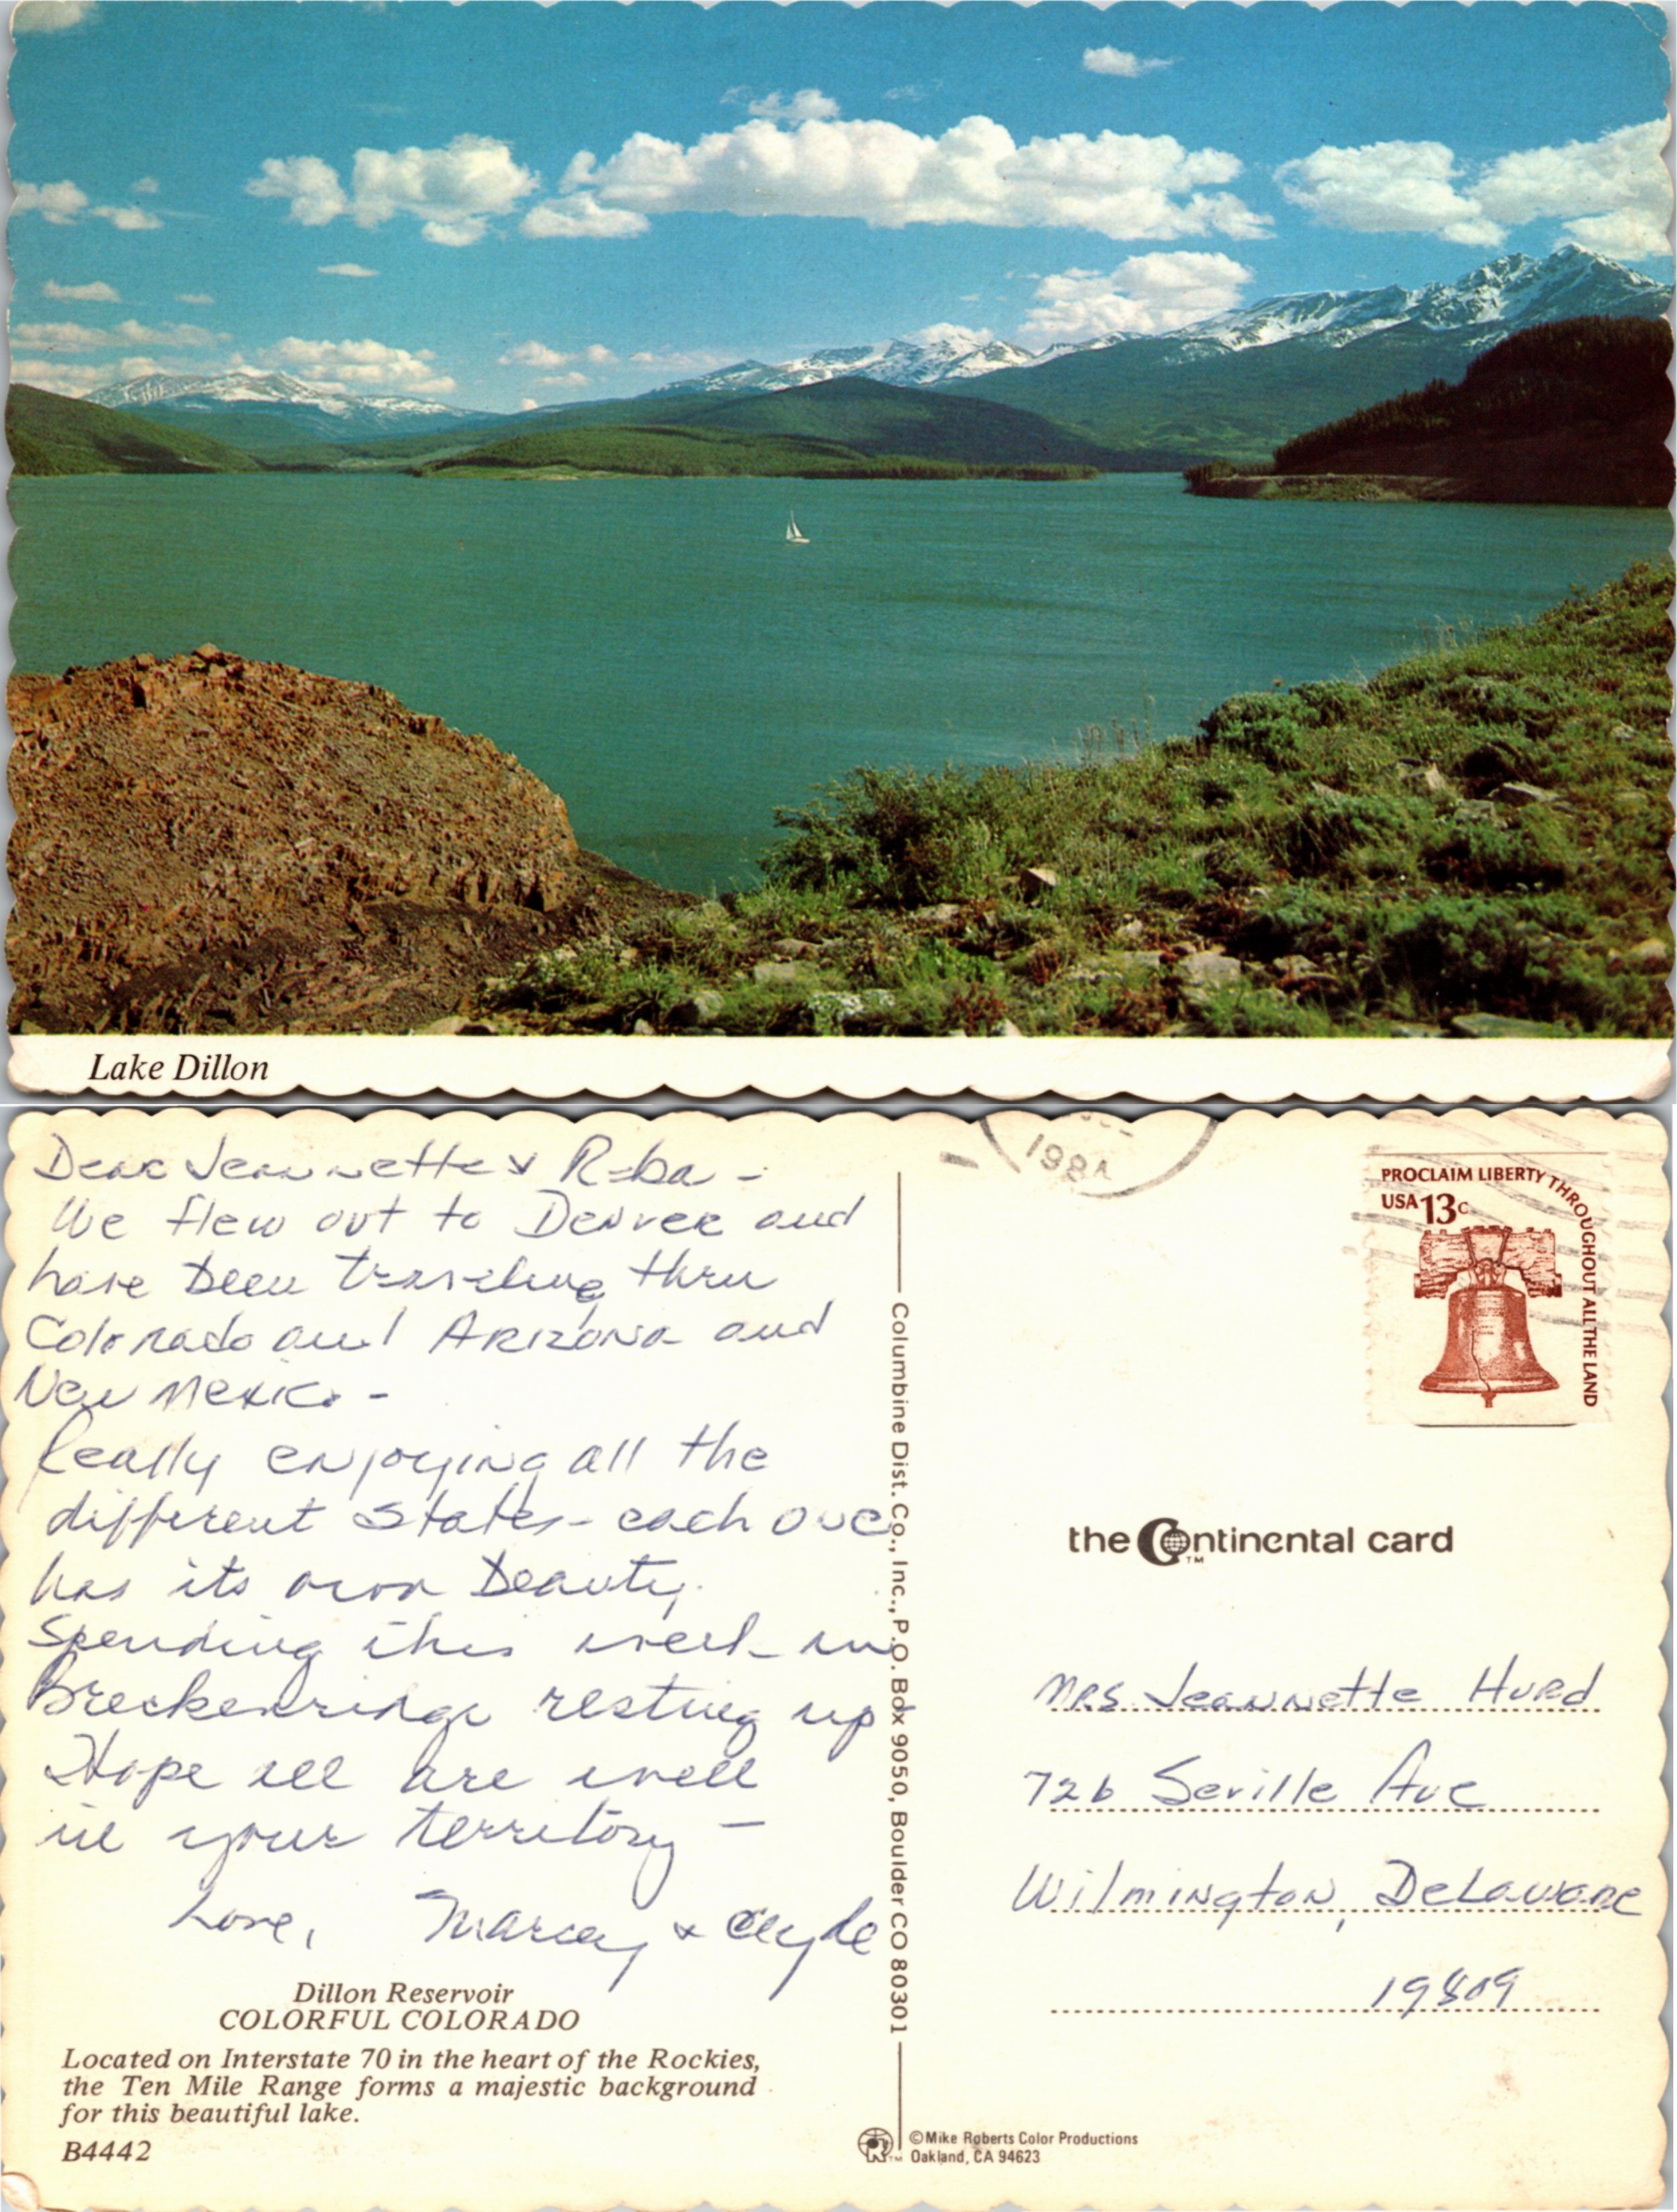 Lake Dillon
Dear Jeannette & Reba -
We flew out to Denver and
have been traveling thru
Colorado and Arizona and
New Mexico -
Really enjoying all the
different states - each one
has its own beauty.
Spending this week in
Breckenridge resting up
Hope all are well
in your territory -
Love, Marcey & Clyde
Dillon Reservoir
COLORFUL COLORADO
Located on Interstate 70 in the heart of the Rockies,
the Ten Mile Range forms a majestic background
for this beautiful lake.
B4442
Columbine Dist. Co., Inc., P.O. Box 9050, Boulder CO 80301
©Mike Roberts Color Productions
Oakland, CA 94623
PROCLAIM LIBERTY THROUGHOUT ALL THE LAND
USA 13c
the Continental card
TM
Mrs Jeannette Hurd
726 Seville Ave
Wilmington, Delaware
19809